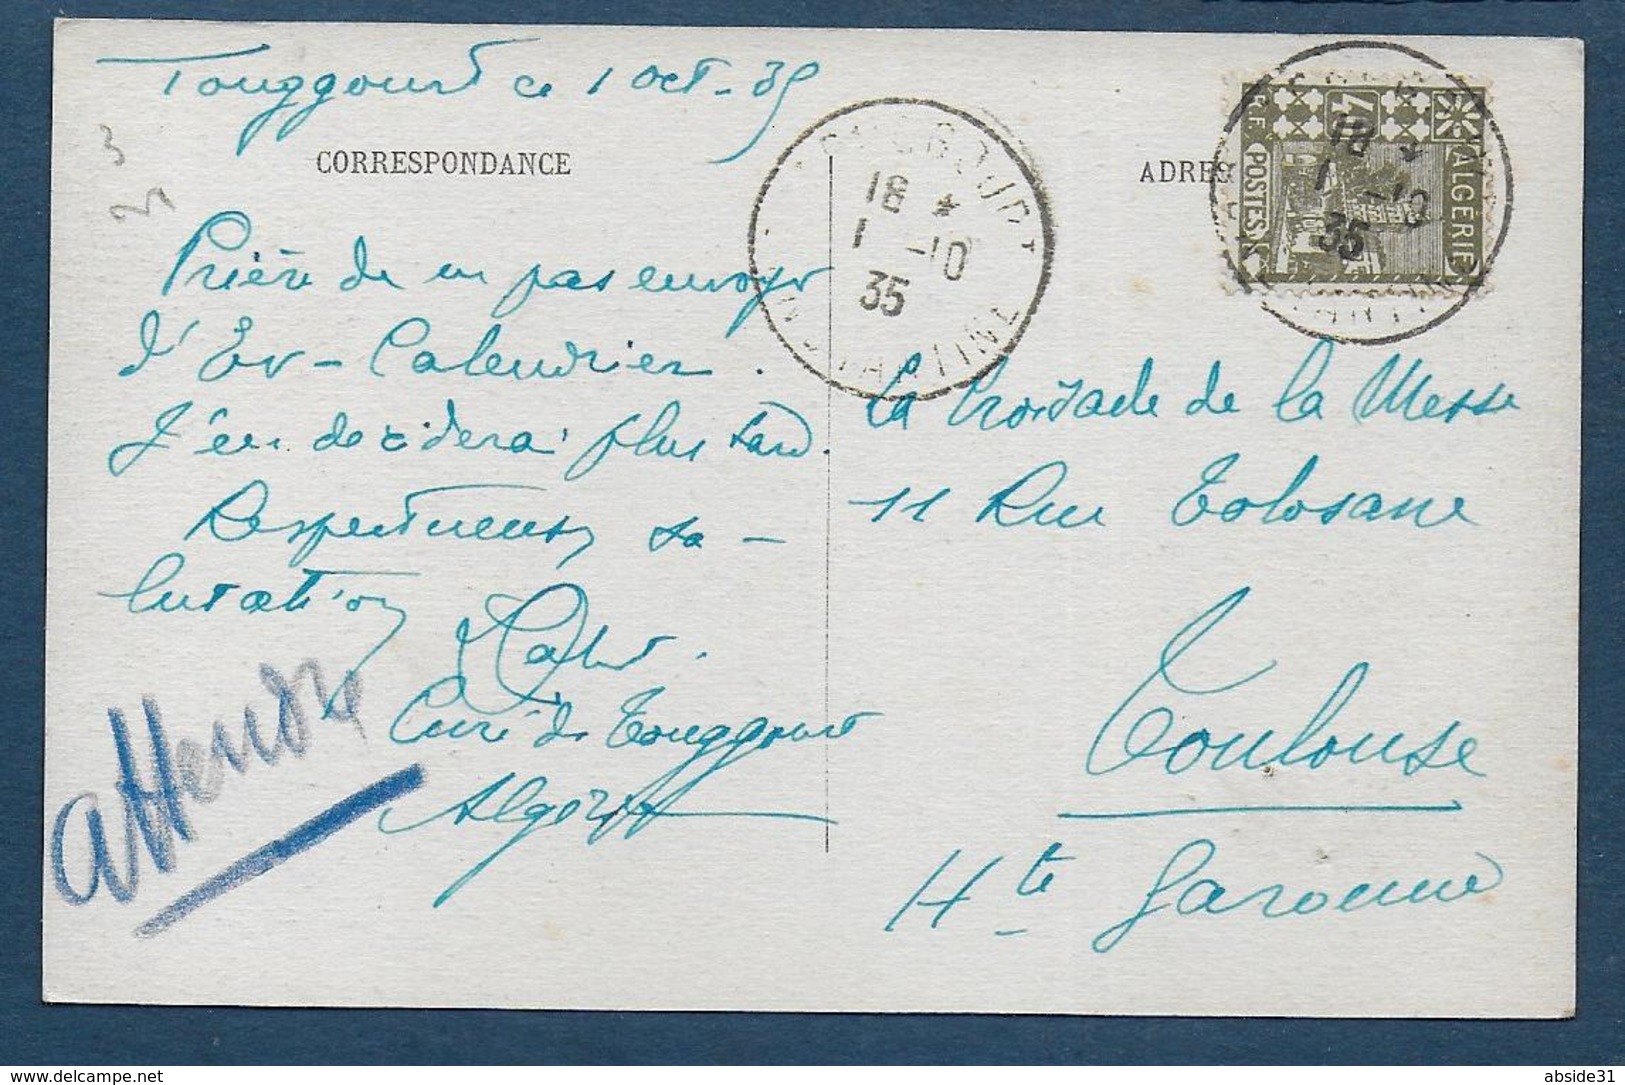 Touggourt ce 1 oct. 35
CORRESPONDANCE
Prière de en pas envoyer
d'Ev-Calendrier.
J'en déciderai plus tard.
Respectueuses sa-
lutations
Curé de Touggourt
Algérie
Attendre
TOUGGOURT
18 *
1 -10
35
CONSTANTINE
ADRES
4
R.F. POSTES
ALGÉRIE
18 *
1 -10
35
La Croisade de la Messe
11 Rue Tolosane
Toulouse
Hte Garonne
www.delcampe.net
abside31